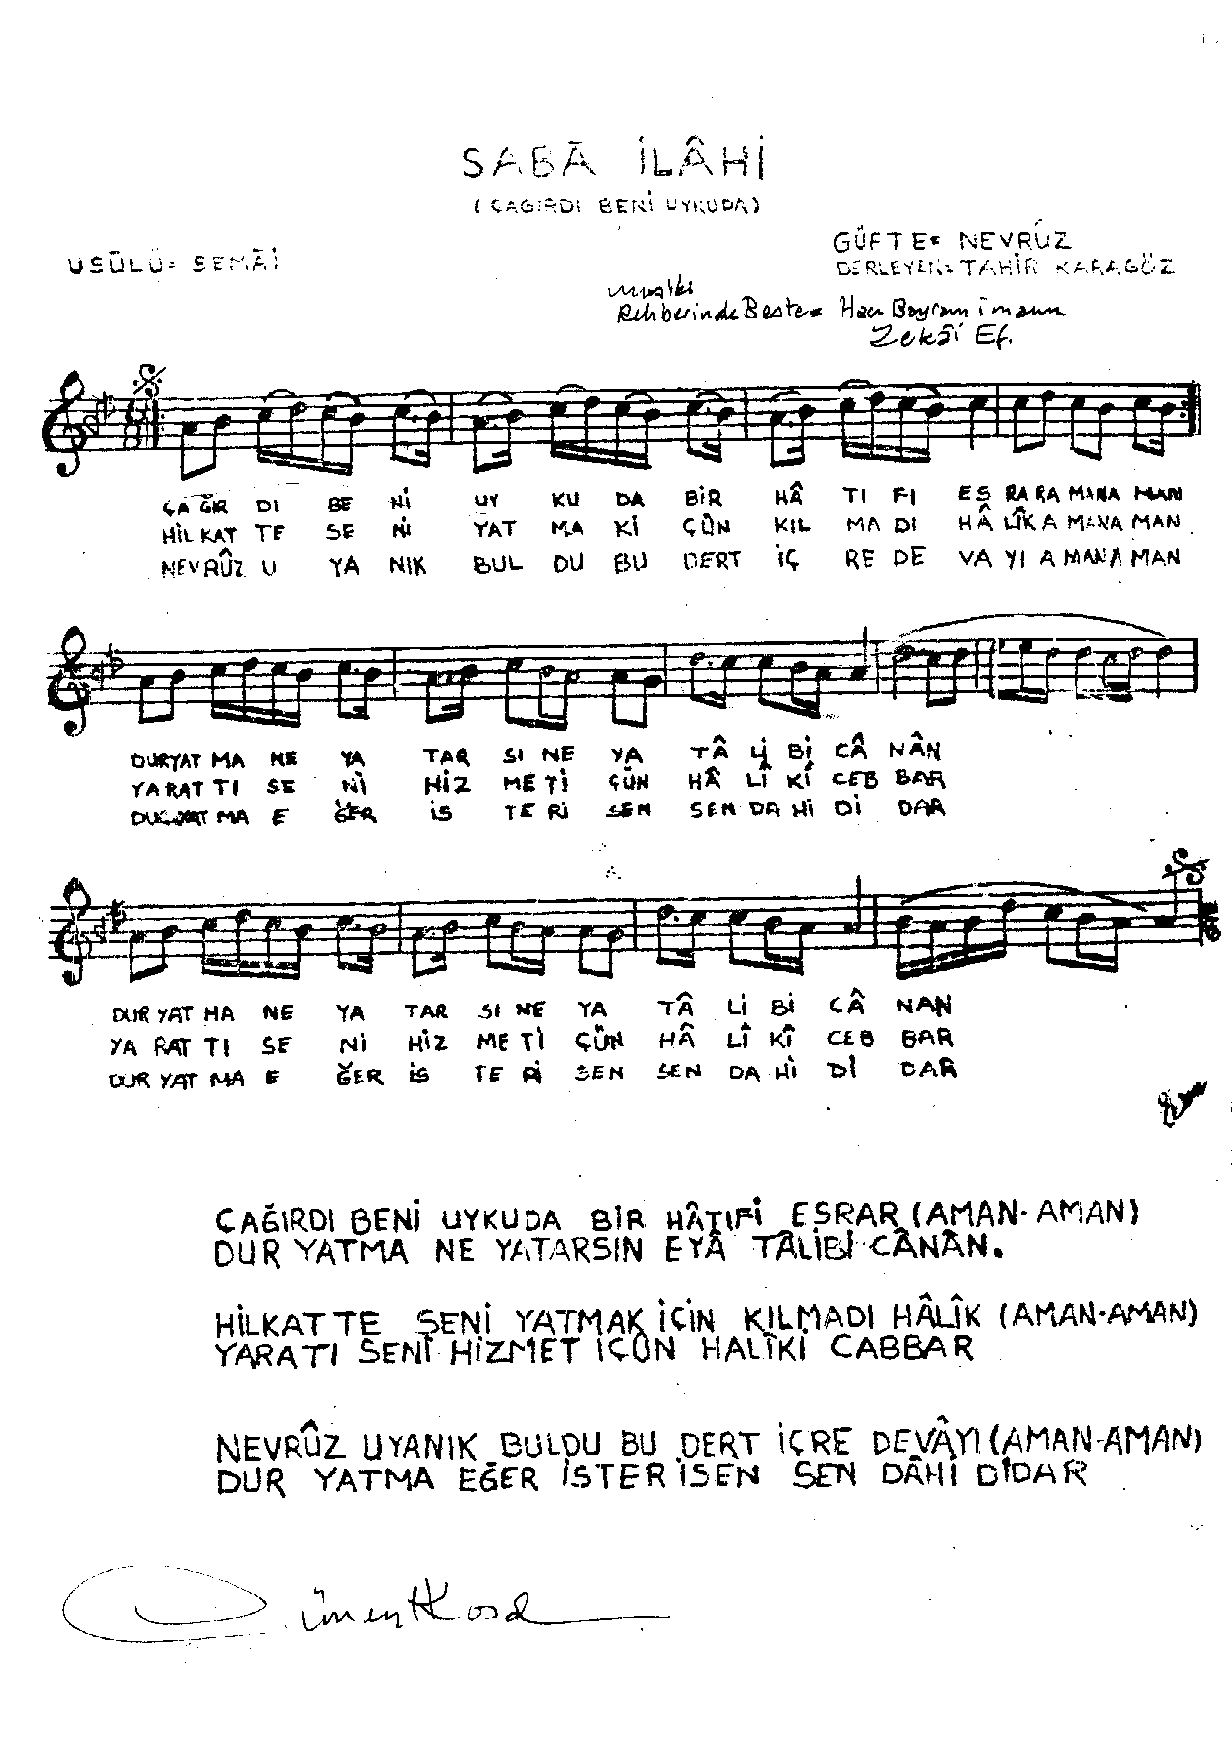 SABÂ İLÂHİ
(ÇAĞIRDI BENİ UYKUDA)
USÛLÜ= SEMÂİ
GÜFTE= NEVRÛZ
DERLEYEN= TAHİR KARAGÖZ
Musiki
Rehberinde Beste= Hacı Bayram İmamı
Zekâi Ef.
ÇA ĞIR DI BE Nİ UY KU DA BİR HÂ TI FI ES RA RA MANA MAN
HİL KAT TE SE Nİ YAT MA Kİ ÇÛN KIL MA DI HÂ LÎK A MANA MAN
NEVRÛZ U YA NIK BUL DU BU DERT İÇ RE DE VA YI A MANA MAN
DUR YAT MA NE YA TAR SI NE YA TÂ Lİ Bİ CÂ NÂN
YA RAT TI SE Nİ HİZ ME Tİ ÇÛN HÂ LÎ Kİ CEB BAR
DUR YAT MA E ĞER İS TE Rİ SEN SEN DA Hİ Dİ DAR
DUR YAT MA NE YA TAR SI NE YA TÂ Lİ Bİ CÂ NAN
YA RAT TI SE Nİ HİZ ME Tİ ÇÛN HÂ LÎ KÎ CEB BAR
DUR YAT MA E ĞER İS TE Rİ SEN SEN DA Hİ Dİ DAR
ÇAĞIRDI BENİ UYKUDA BİR HÂTIFİ ESRAR (AMAN-AMAN)
DUR YATMA NE YATARSIN EYÂ TÂLİBİ CÂNÂN.
HİLKAT TE SENİ YATMAK İÇİN KILMADI HÂLÎK (AMAN-AMAN)
YARATI SENİ HİZMET İÇÛN HALÎKİ CABBAR
NEVRÛZ UYANIK BULDU BU DERT İÇRE DEVÂYI (AMAN-AMAN)
DUR YATMA EĞER İSTER İSEN SEN DÂHİ DİDAR